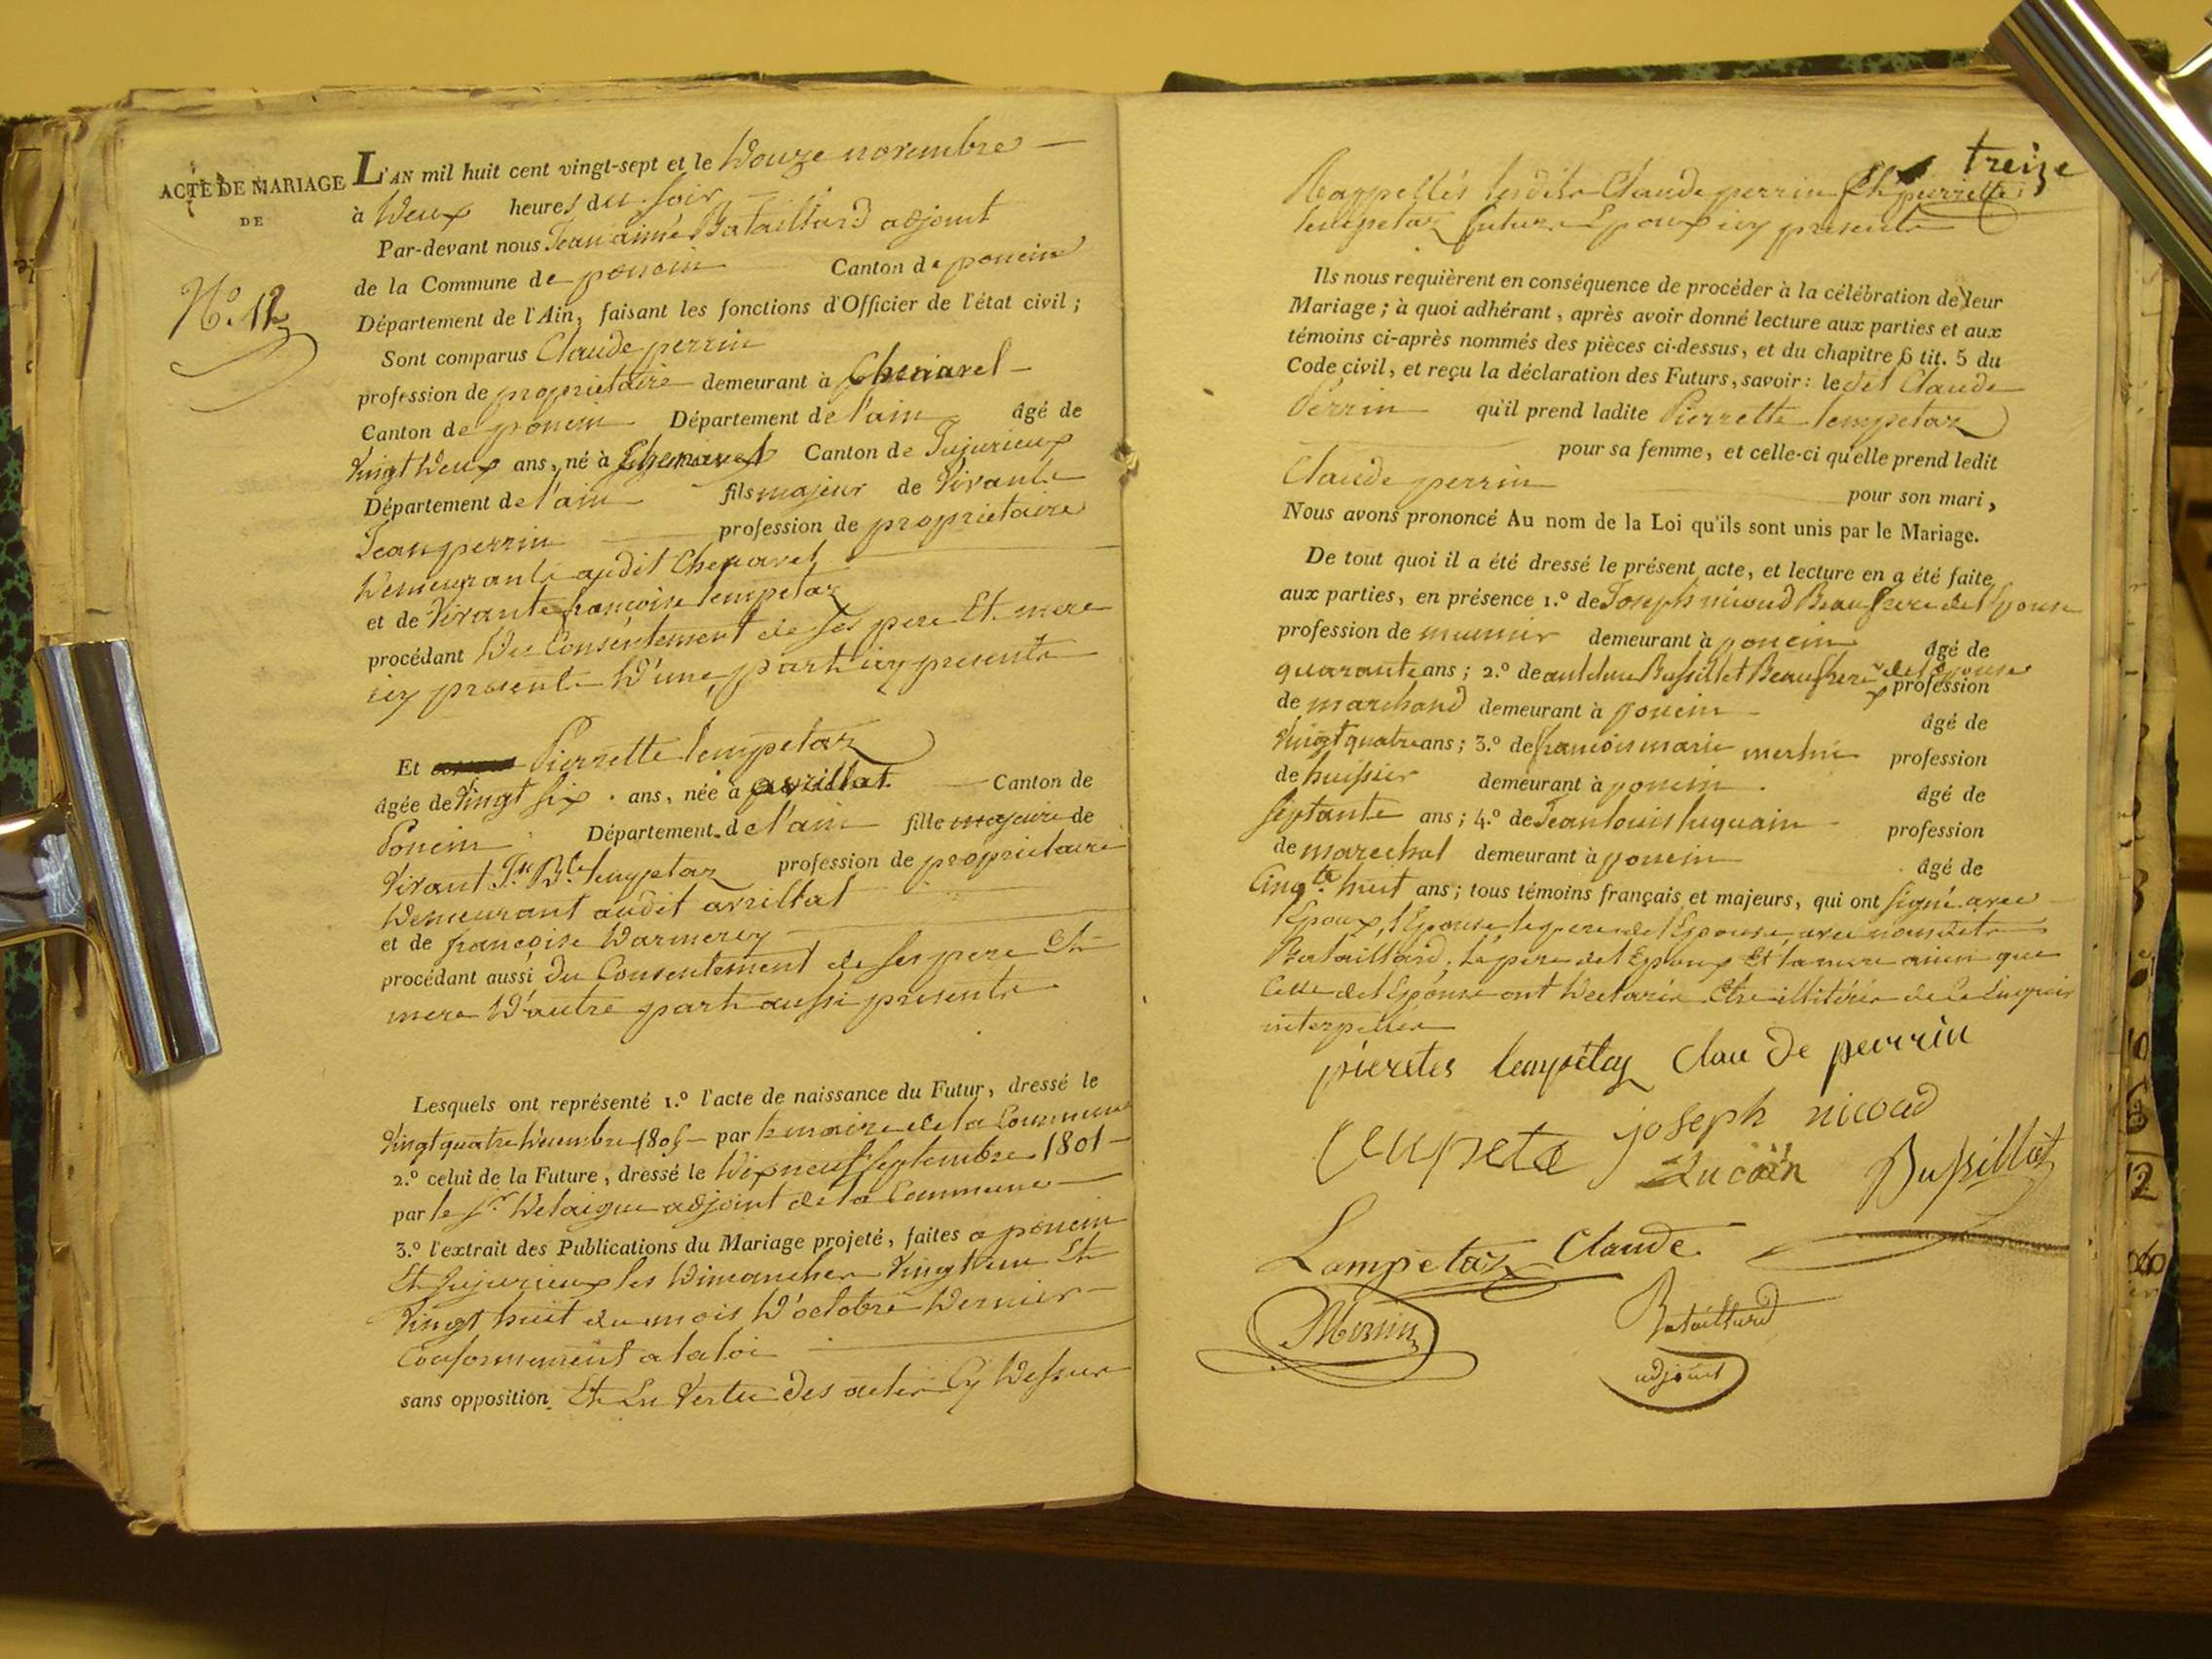 ACTE DE MARIAGE
DE
N.º 12
L'AN mil huit cent vingt-sept et le Douze novembre
à Deux heures du soir
Par-devant nous Jean aimé Bataillard adjoint
de la Commune de poncin Canton de poncin
Département de l'Ain, faisant les fonctions d'Officier de l'état civil ;
Sont comparus Claude perrin
profession de proprietaire demeurant à Chenavel
Canton de poncin Département de l'ain âgé de
Vingt Deux ans, né à Chenavel Canton de Jujurieux
Département de l'ain fils majeur de Vivants
Jean perrin profession de proprietaire
Demeurants audit Chenavel
et de Vivante françoise lempetaz
procédant Du Consentement de ses pere Et mere
icy presents D'une part icy presents
Et Pierrette lempetaz
âgée de Vingt six ans, née à avrillat Canton de
Poncin Département de l'ain fille majeure de
Vivant Jn Bte lempetaz profession de proprietaire
Demeurant audit avrillat
et de françoise Darmerey
procédant aussi Du Consentement de ses pere Et
mere D'autre part aussi presents
Lesquels ont représenté 1.º l'acte de naissance du Futur, dressé le
Vingt quatre Decembre 1805 par le maire de la Commune
2.º celui de la Future, dressé le Dix neuf septembre 1801
par le Sr Delaigue adjoint de la Commune
3.º l'extrait des Publications du Mariage projeté, faites a poncin
Et Jujurieux les Dimanches Vingt un Et
Vingt huit du mois D'octobre Dernier
Conformement a la loi
sans opposition Et En Vertu des actes Cy Dessus
treize
Rappellés lesdits Claude perrin Et pierrette
lempetaz futurs Epoux icy presents
Ils nous requièrent en conséquence de procéder à la célébration de leur
Mariage ; à quoi adhérant, après avoir donné lecture aux parties et aux
témoins ci-après nommés des pièces ci-dessus, et du chapitre 6 tit. 5 du
Code civil, et reçu la déclaration des Futurs, savoir : le dit Claude
Perrin qu'il prend ladite Pierrette lempetaz
pour sa femme, et celle-ci qu'elle prend ledit
Claude perrin pour son mari,
Nous avons prononcé Au nom de la Loi qu'ils sont unis par le Mariage.
De tout quoi il a été dressé le présent acte, et lecture en a été faite
aux parties, en présence 1.º de Joseph nicoud Beau frere de l'Epouse
profession de meunier demeurant à poncin âgé de
quarante ans ; 2.º de Bussillet Beau frere de l'Epouse profession
de marchand demeurant à poncin âgé de
Vingt quatre ans ; 3.º de françois marie profession
de huissier demeurant à poncin âgé de
septante ans ; 4.º de Jean louis luquain profession
de marechal demeurant à poncin âgé de
Cinqte huit ans ; tous témoins français et majeurs, qui ont signé avec
l'Epoux, l'Epouse le pere de l'Epouse, avec nous dit
Bataillard, le père de l'Epoux Et la mere ainsi que
Celle de l'Epouse ont Declarés Etre illitérés de ce Enquis
interpellés
pieretes lempétaz Clau de perrin
lenpeta joseph nicoud
Lucain Bussillet
Lampetaz Claude
Bataillard
adjoint